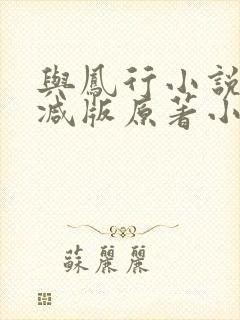 與鳳行小說
減版原著小
蘇麗麗